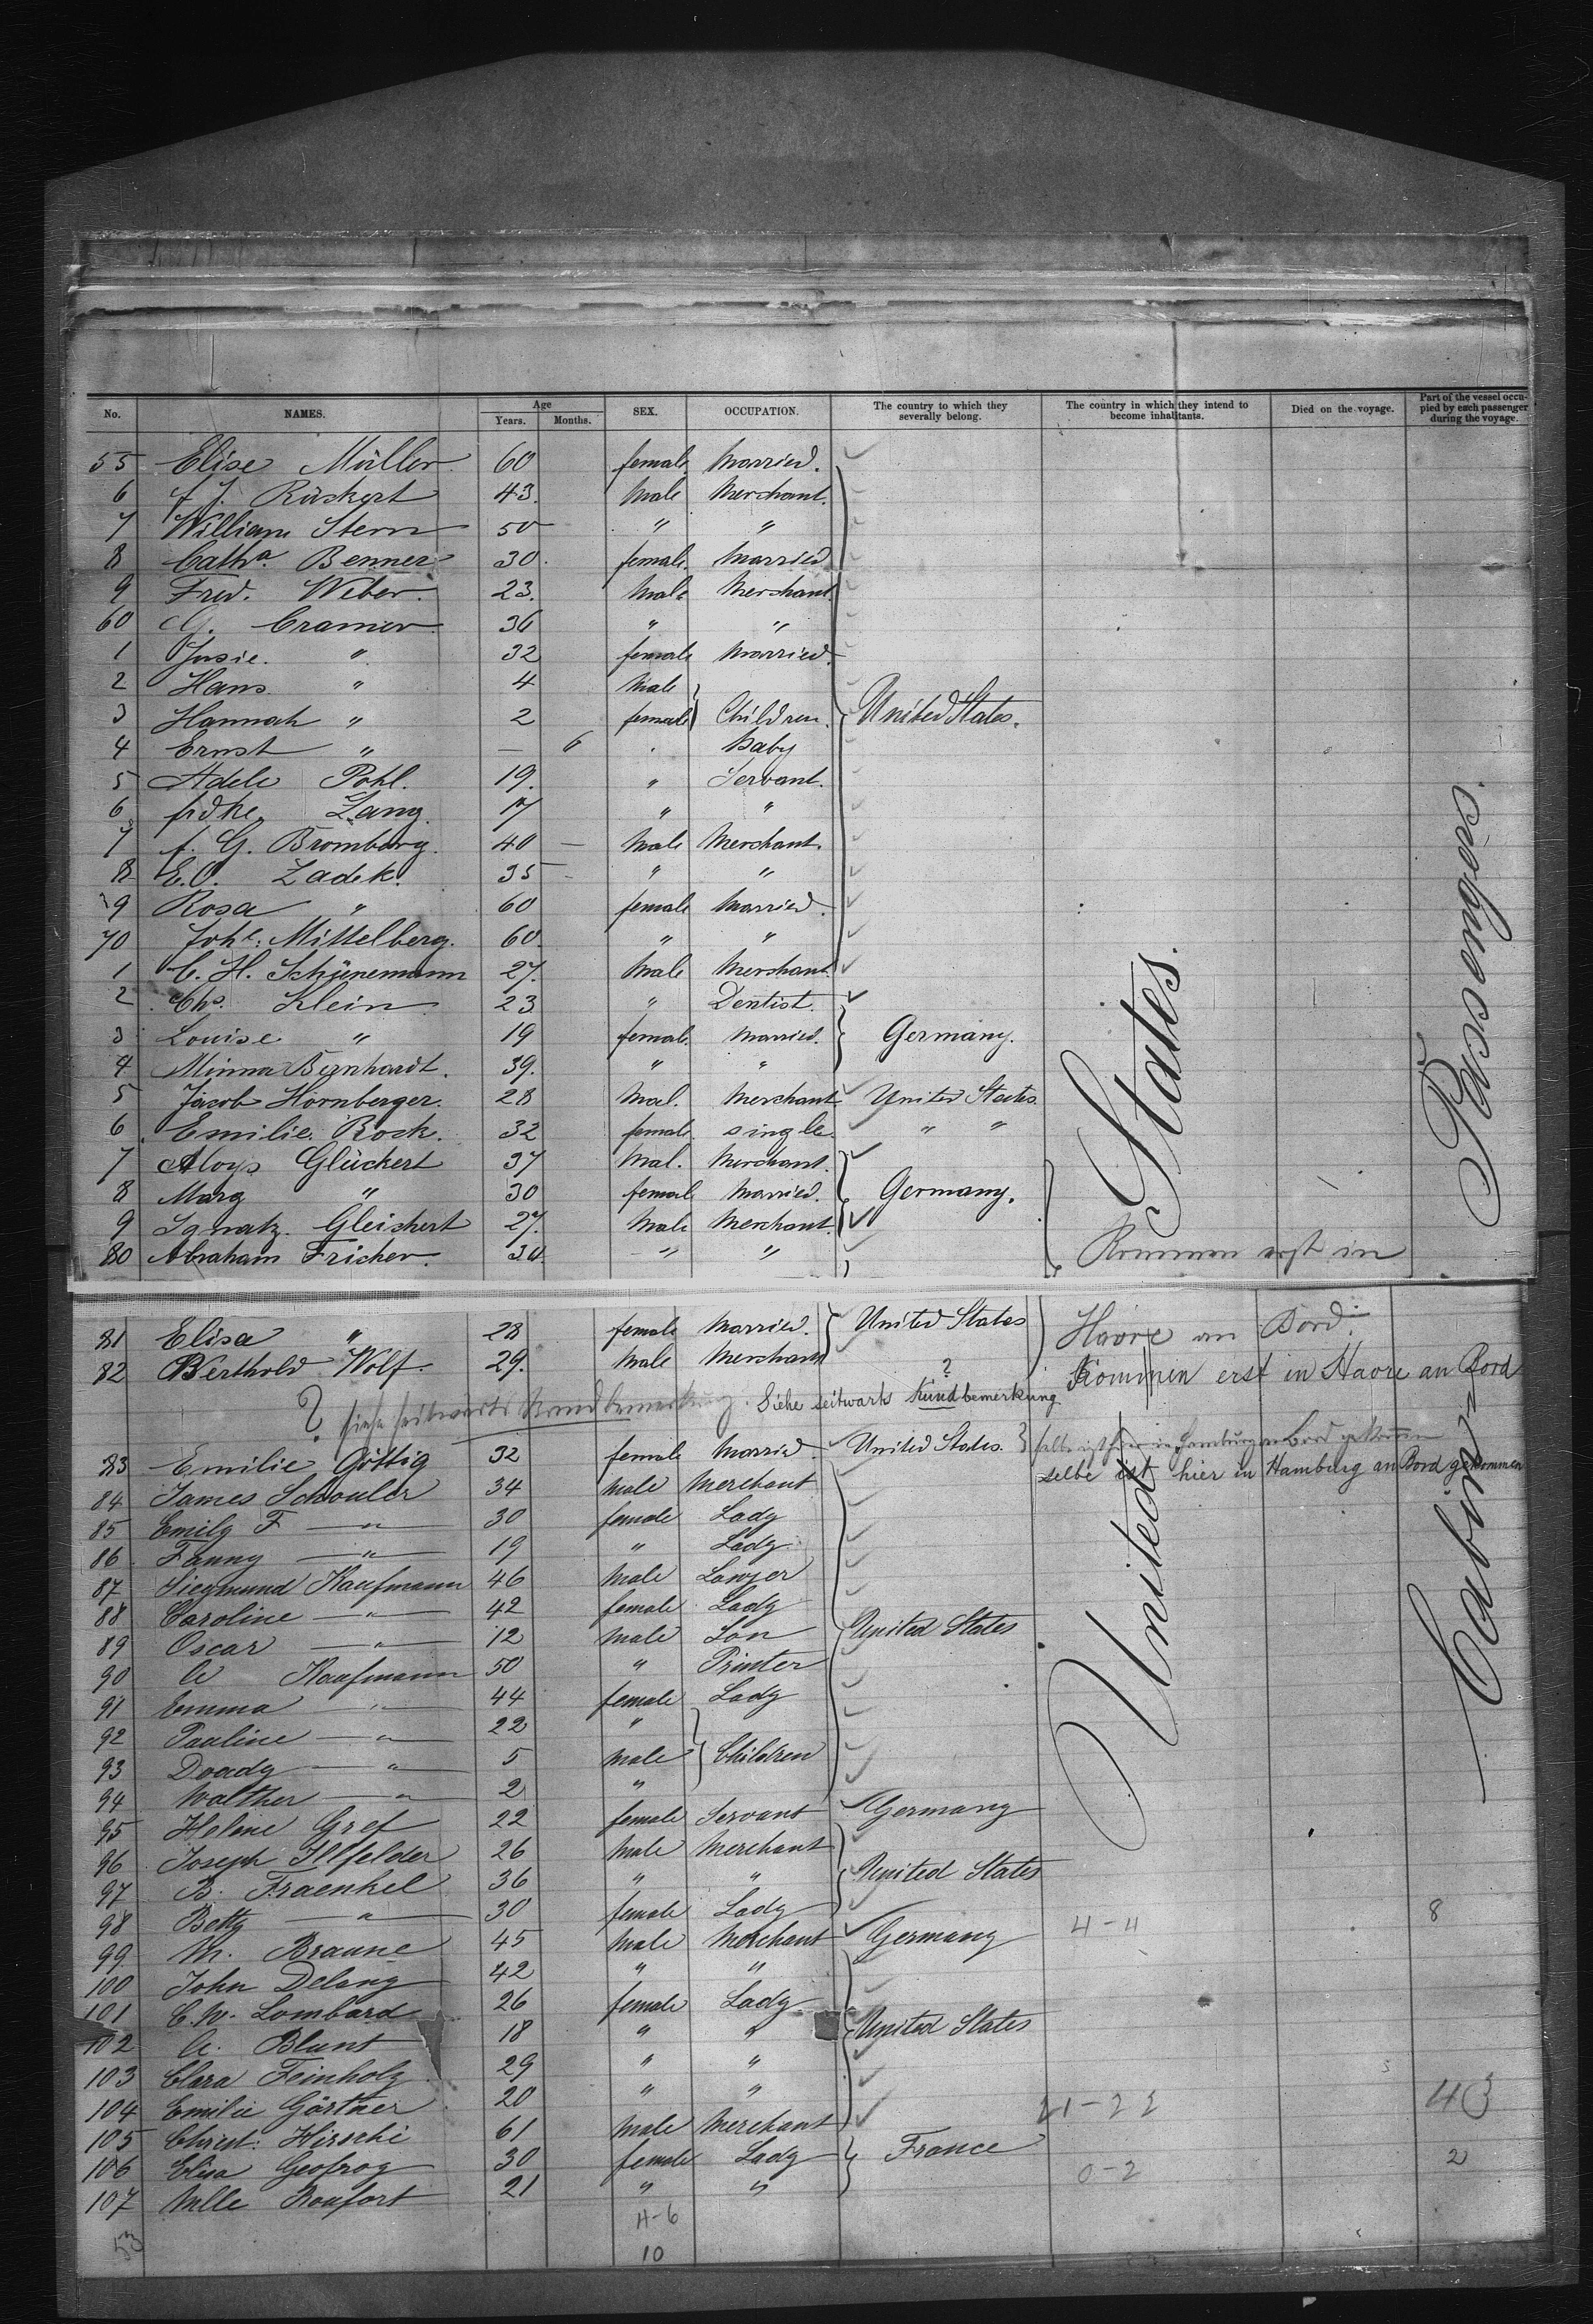 No. NAMES. Age Years. Months. SEX. OCCUPATION. The country to which they severally belong. The country in which they intend to become inhabitants. Died on the voyage. Part of the vessel occupied by each passenger during the voyage.
55 Elise Müller 60 female Married.
6 F. J. Rückert 43. Male Merchant.
7 William Stern 50 " "
8 Catha. Benner 30. female Married
9 Fred. Weber. 23. Male Merchant
60 G. Cramer 36 " "
1 Josie. " 32 female Married.
2 Hans " 4 Male
3 Hannah " 2 female Children. United States.
4 Ernst " — 6 Baby
5 Adele Pohl. 19. " Servant.
6 Lang. 17 " "
7 F. G. Bromberg. 40 — Male Merchant.
8 E. O. Zadek. 35 - " "
9 Rosa " 60 female Married.
70 Johe: Mittelberg. 60. " "
1 C. H. Schünemann 27. Male Merchant.
2 Chs. Klein 23 " Dentist.
3 Louise " 19 female Married. Germany.
4 Minna Bernhardt. 39. " "
5 Jacob Hornberger. 28 Mal. Merchant United States.
6 Emilie Rock. 32 female single " "
7 Aloys Glückert 37 Mal. Merchant.
8 Marg " 30 female Married. Germany.
9 Ignatz. Gleichert 27. Male Merchant.
80 Abraham Fricher. 34. " " Kommen erst in
81 Elisa " 28 female Married. United States Havre an Bord.
82 Berthold Wolf. 29. Male Merchant ? Kommen erst in Havre an Bord
? siehe seitwarts Randbemerkung. Siehe seitwarts Randbemerkung
83 Emilie Göttig 32 female Married United States. selbe ist hier in Hamburg an Bord gekommen
selbe ist hier in Hamburg an Bord gekommen
84 James Schouler 34 Male Merchant
85 Emily F — " — 30 female Lady
86 Fanny — " — 19 " Lady
87 Siegmund Kaufmann 46 Male Lawyer
88 Caroline — " — 42 female Lady
89 Oscar — " — 12 Male Son United States
90 A Kaufmann 50 " Printer
91 Emma — " — 44 female Lady
92 Pauline — " — 22 "
93 Doady — " — 5 Male Children
94 Walther — " — 2 "
95 Helene Gref 22 female Servant Germany
96 Joseph Ilfelder 26 Male Merchant
97 B. Fraenkel 36 " " United States
98 Betty — " — 30 female Lady
99 M. Braune 45 Male Merchant Germany 4-4 8
100 John Delang 42 " "
101 C. W. Lombard 26 female Lady
102 A. Blunt 18 " " United States
103 Clara Feinholz 29 " "
104 Emilie Gärtner 20 " "
105 Christ: Hirschi 61 Male Merchant 21-22 43
106 Elisa Geofroy 30 female Lady France
107 Mlle Roufort 21 " " 0-2 2
53 4-6
10
United States.
Cabin Passengers.